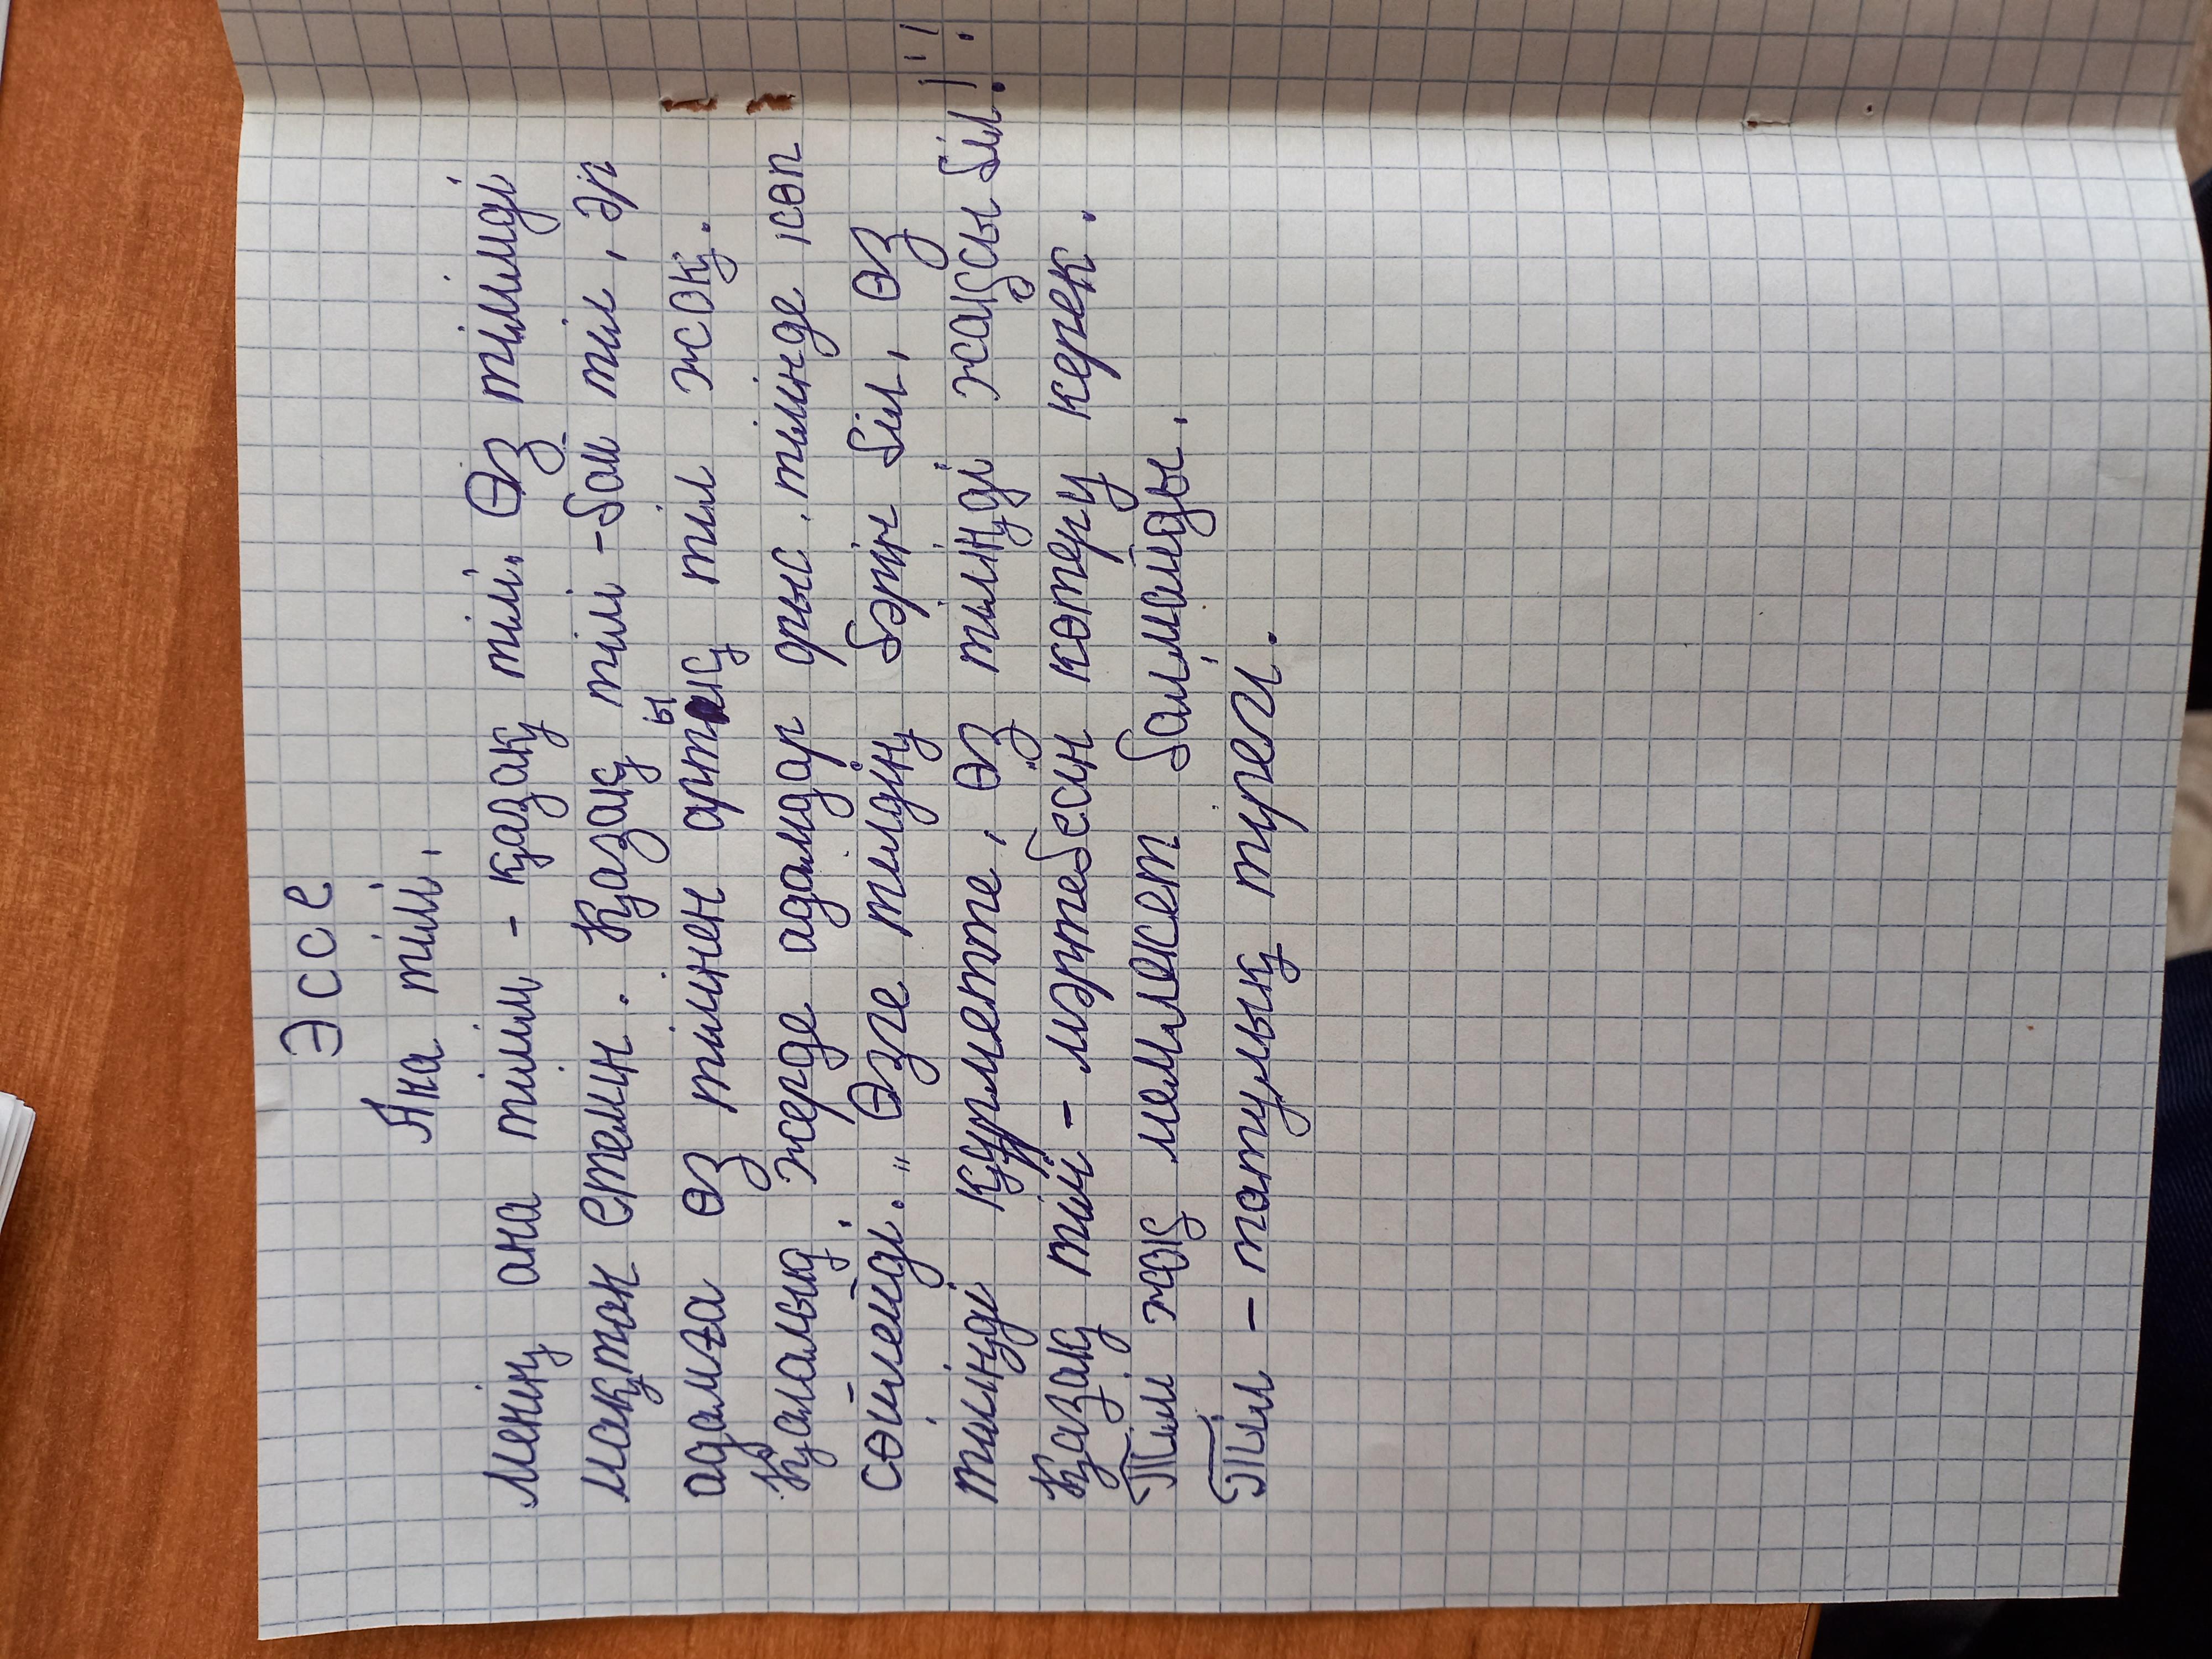 Эссе
Ана тілі.
Менің ана тілім - қазақ тілі. Өз тілімді
мақтан етемін. Қазақ тілі - бай тіл, әр
адамға өз тілінен артық тіл жоқ.
Қалалық жерде адамдар орыс тілінде көп
сөйлейді. „Өзге тілдің бәрін біл, өз
тіліңді құрметте, өз тіліңді жақсы біл!"!
Қазақ тілі - мәртебесін көтеру керек.
Тіл жоқ мемлекет болмайды.
Тіл - татулық тірегі.